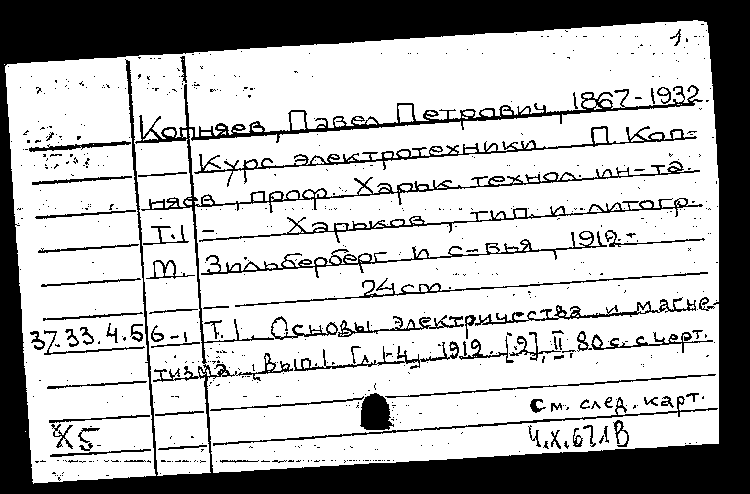 1.
Копняев, Павел Петрович, 1867-1932
Курс электротехники. П. Коп-
няев, проф. Харьк. технол. ин-та.
Т.1 - Харьков, тип. и литогр.
М. Зильберберг и с-вья, 1912-
24 cm.
37.33.4.5 6-1 Т.1. Основы электричества и магне-
тизма. Вып.1. Гл. 1-4. 1912. [2], II, 80 с. с черт.
см. след. карт.
X5 4.X.671В